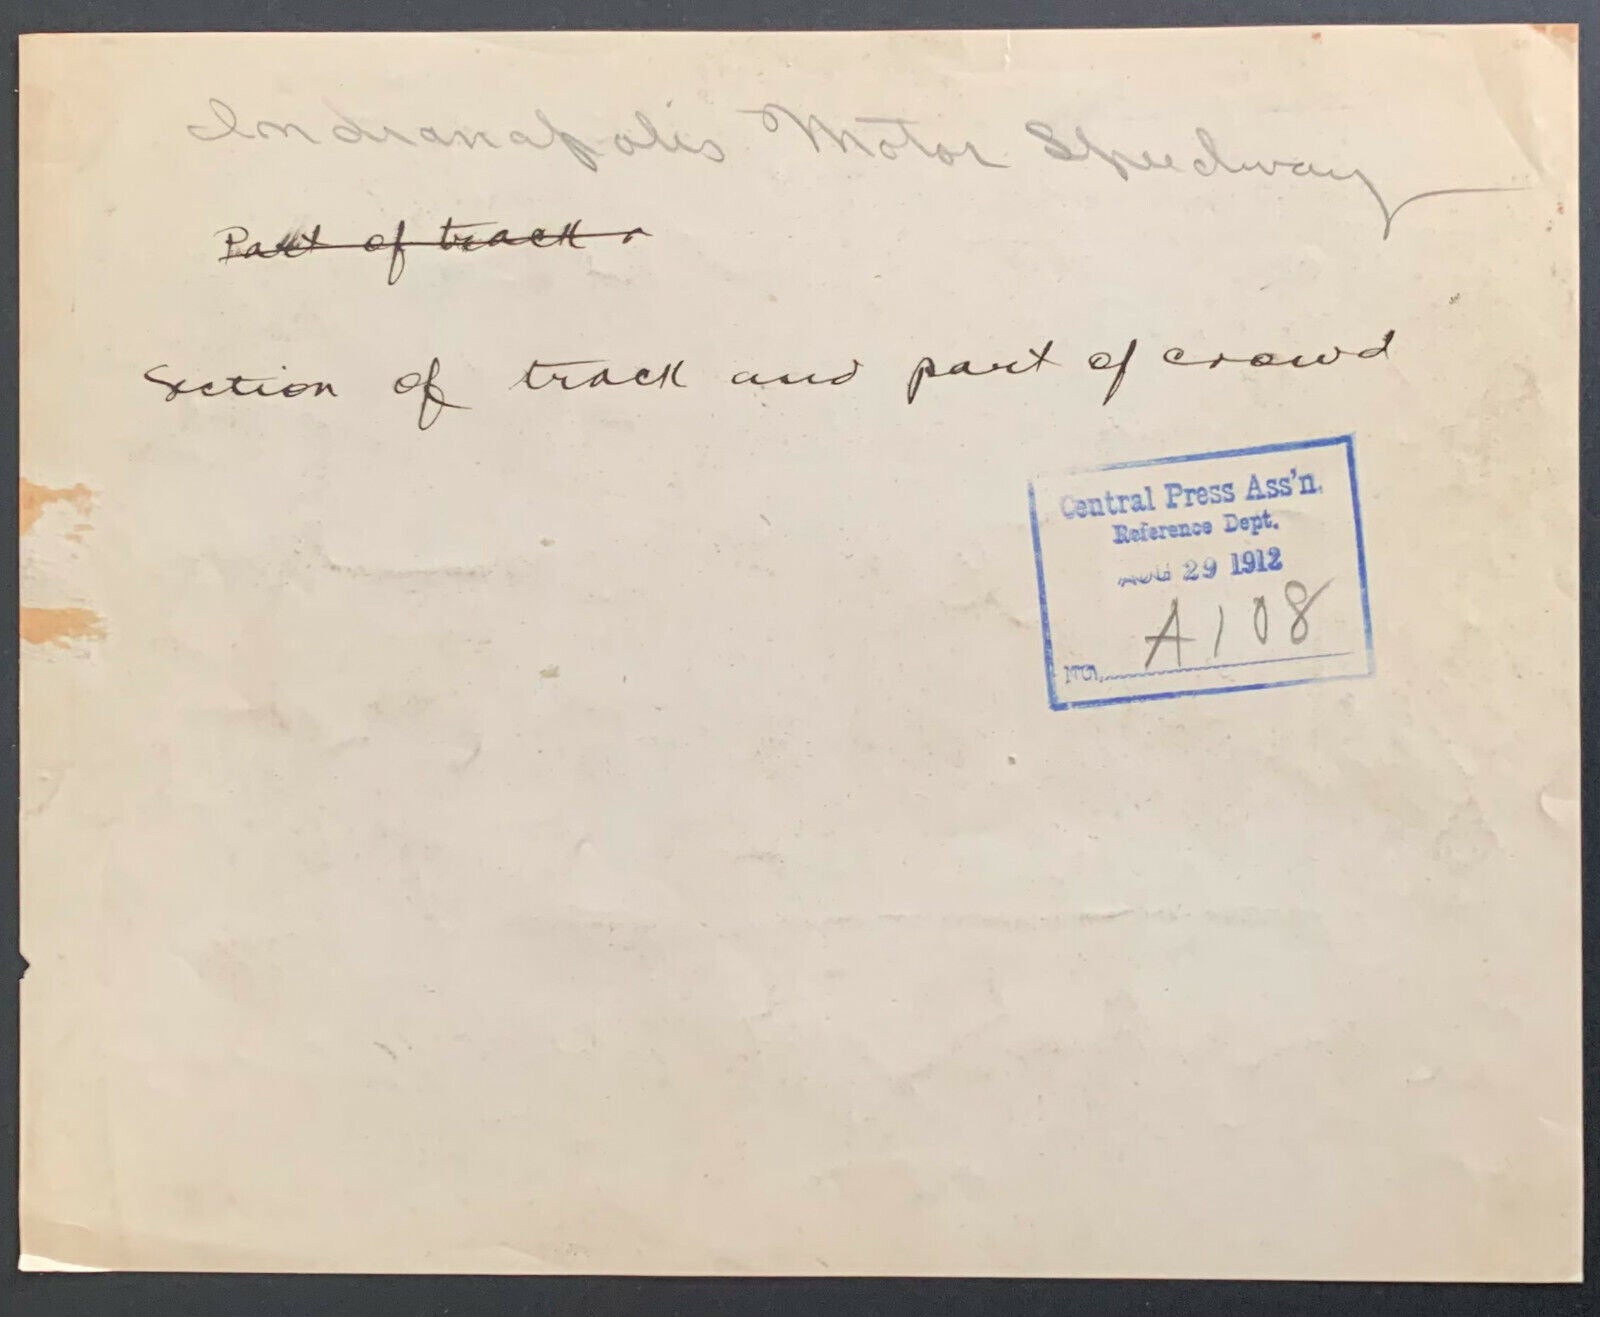 Indianapolis Motor Speedway
Part of track
Section of track and part of crowd
Central Press Ass'n.
Reference Dept.
AUG 29 1912
No. A108